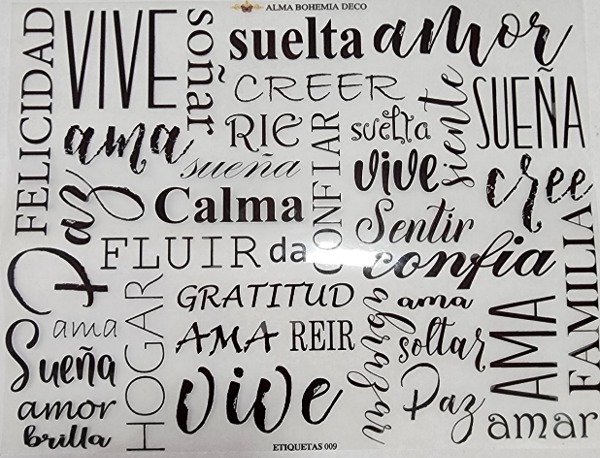 ALMA BOHEMIA DECO
FELICIDAD
VIVE
soñar
suelta
amor
CREER
RIE
suelta
siente
SUEÑA
ama
sueña
CONFIAR
vive
cree
Paz
Calma
Sentir
FLUIR
da
confia
FAMILIA
HOGAR
GRATITUD
abrazar
ama
AMA
ama
AMA
REIR
soltar
Sueña
vive
Paz
amor
amar
brilla
ETIQUETAS 009